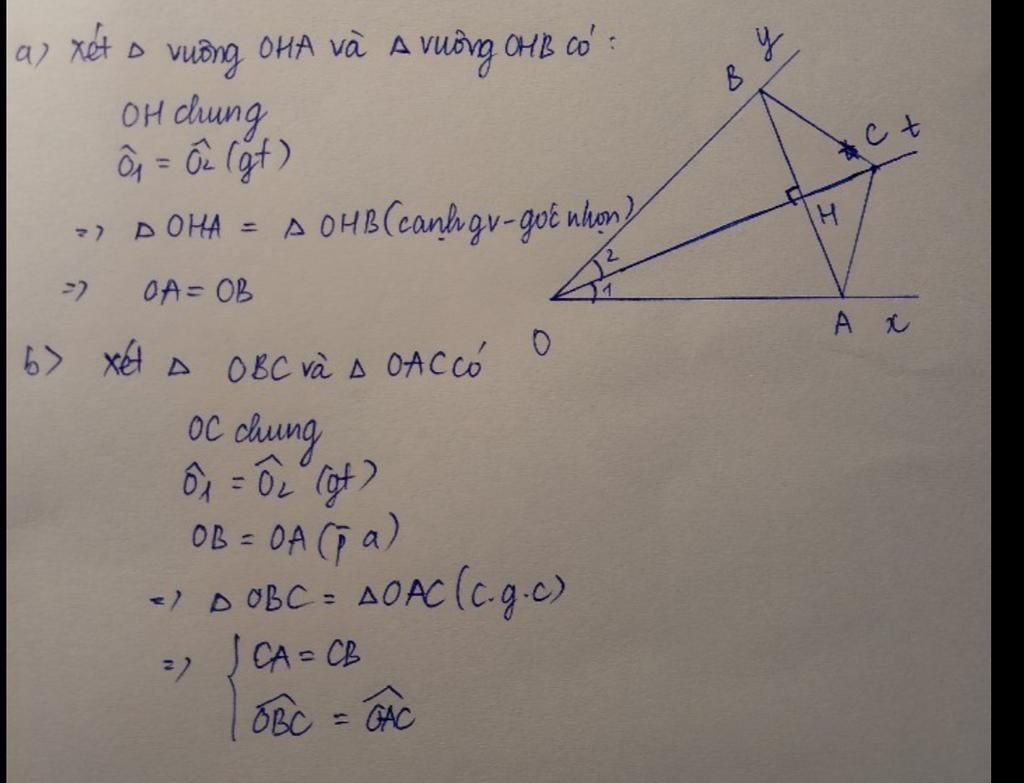 a) xét Δ vuông OHA và Δ vuông OHB có :
OH chung
Ô1 = Ô2 (gt)
=> Δ OHA = Δ OHB (cạnh gv - góc nhọn)
=> OA = OB
b) xét Δ OBC và Δ OAC có
OC chung
Ô1 = Ô2 (gt)
OB = OA (p̄ a)
=> Δ OBC = Δ OAC (c.g.c)
=> { CA = CB
OBĈ = OAĈ
y
B
C t
H
2
1
O
A x